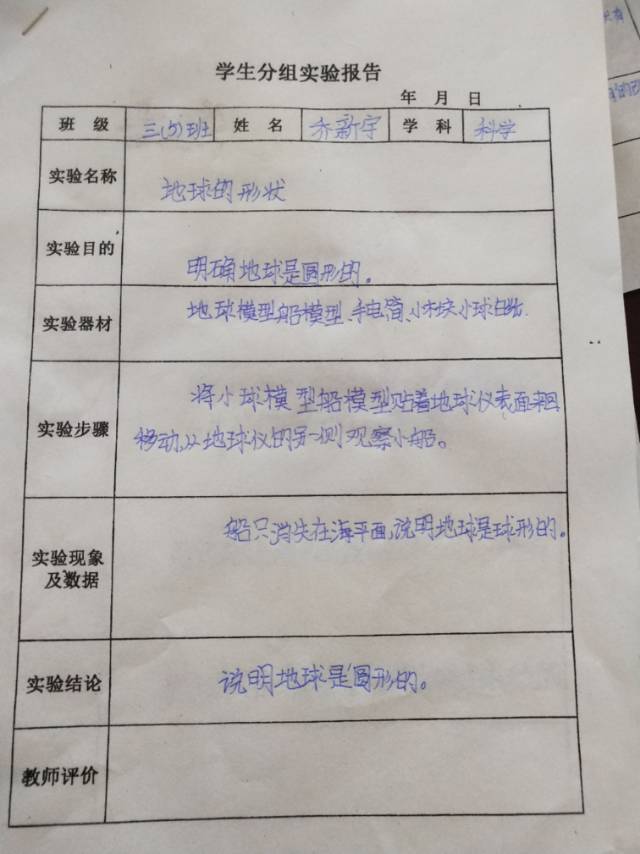 学生分组实验报告
年 月 日
班 级 三(5)班 姓 名 乔新宇 学 科 科学
实验名称 地球的形状
实验目的 明确地球是圆形的。
实验器材 地球模型船模型、手电筒、小木块小球
实验步骤 将小球模型船模型贴着地球仪表面来回
移动,从地球仪的另一侧观察小船。
实验现象
及数据
船只消失在海平面,说明地球是球形的。
实验结论 说明地球是圆形的。
教师评价